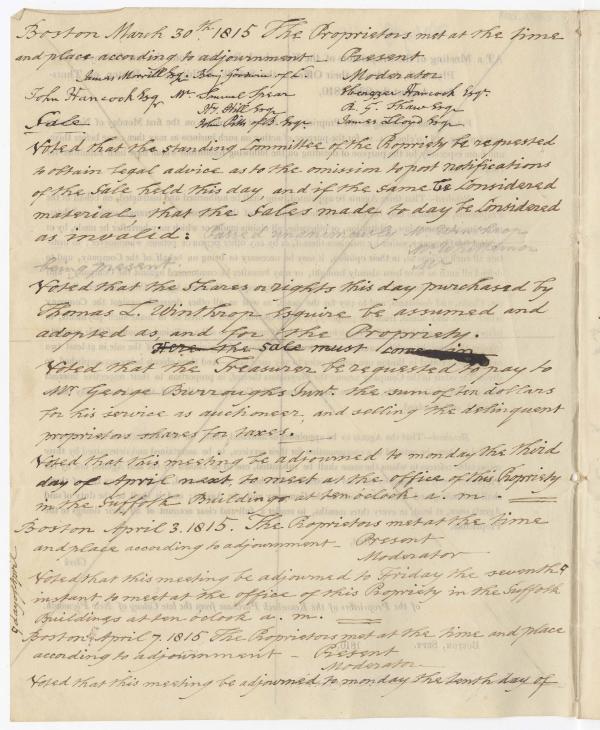 Boston March 30th 1815 The Proprietors met at the time
and place according to adjournment – Present
James Morrill Esq. Benj Joy Moderator
John Hancock Esq Mr. Samuel Frear Ebenezer Hancock Esqr.
H. Hill Esq R. G. Shaw Esq
Sale John Pitts Esqr. James Lloyd Esq
Voted that the standing Committee of the Propriety be requested
to obtain legal advice as to the omission to post notifications
of the Sale held this day, and if the same be considered
material, that the Sales made to day be considered
as invalid:
being present
Voted that the Shares or rights this day purchased by
Thomas L. Winthrop Esquire be assumed and
adopted as, and for the Propriety.
Here the Sale must come in
Voted that the Treasurer be requested to pay to
Mr. George Burroughs Junr. the sum of ten dollars
for his service as auctioneer, and selling the delinquent
proprietors shares for taxes.
Voted that this meeting be adjourned to monday the third
day of April next, to meet at the office of this Propriety
in the Suffolk Buildings at ten oclock a. m.
Boston April 3. 1815. The Proprietors met at the time
and place according to adjournment – Present
Moderator
Voted that this meeting be adjourned to Friday the seventh
day of April
instant to meet at the office of this Propriety in the Suffolk
Buildings at ten oclock a. m.
Boston April 7. 1815 The Proprietors met at the time and place
according to adjournment – Present
Moderator
Voted that this meeting be adjourned to monday the tenth day of